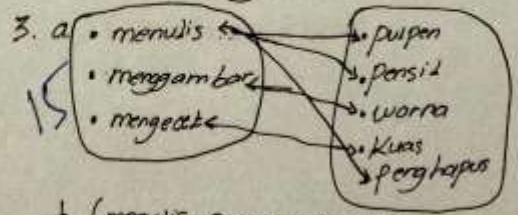 3. a • menulis
• menggambar
• mengecat
15
• pulpen
• pensil
• warna
• kuas
• penghapus
b. (menulis,